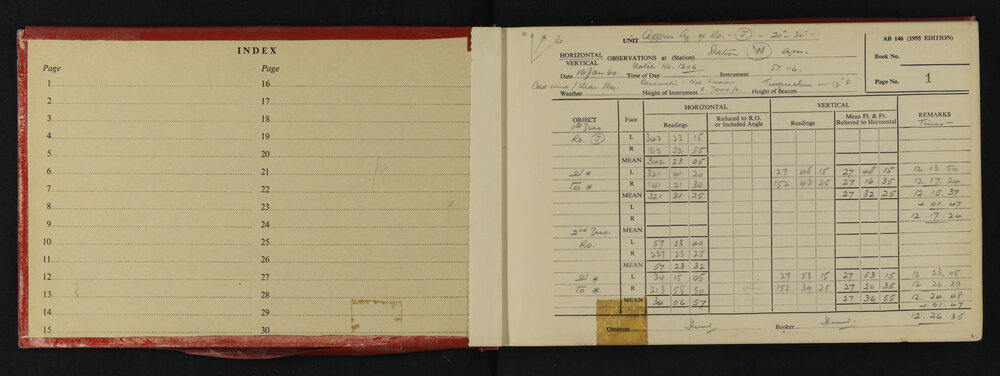 INDEX
Page
Page
1
16
2
17
3
18
4
19
5
20
6
21
7
22
8
23
9
24
10
25
11
26
12
27
13
28
14
29
15
30
N
Ro
UNIT Approx Az. of Ro. - (J) - 20° 30'
AB 146 (1955 EDITION)
HORIZONTAL
VERTICAL
OBSERVATIONS at (Station) Station (W)
Book No.
Watch No. 1206
Date 16 Jan 60 Time of Day Instrument ST. 116.
Page No. 1
Cold wind / Clear Sky.
Barometer - Not known
Temperature - 12° F
Weather Height of Instrument Height of Beacon
OBJECT
Face
HORIZONTAL
VERTICAL
REMARKS
Readings
Reduced to R.O. or Included Angle
Readings
Mean Fl. & Fr. Referred to Horizontal
Times
1st Zero
Ro. (J) L 342 23 15
R 162 22 55
MEAN 342 23 05
L 321 41 20 27 48 15 27 48 15 12 13 50
* R 141 21 30 152 43 25 27 16 35 12 17 24
MEAN 321 31 25 27 32 25 12 15 37
L + 01 47
R 12 17 24
2nd Zero. MEAN
Ro. L 57 23 40
R 237 23 25
MEAN 57 23 32
* L 34 15 05 27 53 15 27 53 15 12 23 08
* R 213 58 50 152 39 25 27 20 35 12 26 29
MEAN 34 06 57 27 36 55 12 24 48
+ 01 47
12 26 35
Observer Booker